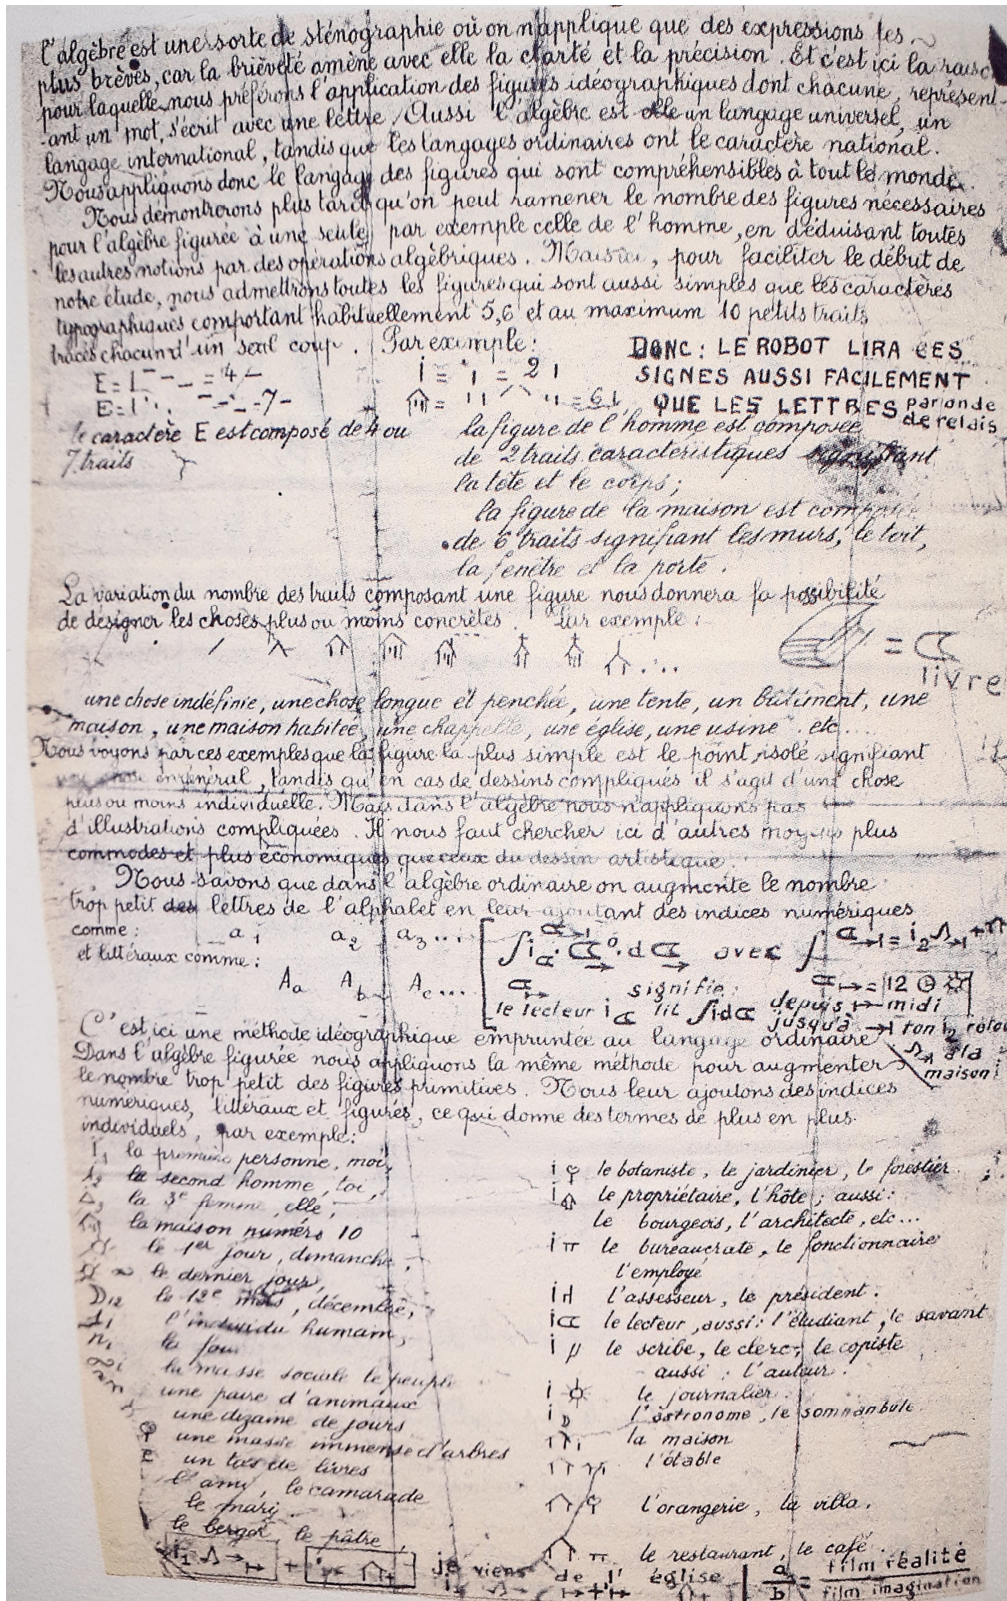 l'algèbre est une sorte de sténographie où on n'applique que des expressions les
plus brèves, car la brièveté amène avec elle la clarté et la précision. Et c'est ici la raison
pour laquelle nous préférons l'application des figures idéographiques dont chacune, représent-
-ant un mot, s'écrit avec une lettre. Aussi l'algèbre est un langage universel, un
langage international, tandis que les langages ordinaires ont le caractère national.
Nous appliquons donc le langage des figures qui sont compréhensibles à tout le monde.
Nous démontrerons plus tard qu'on peut ramener le nombre des figures nécessaires
pour l'algèbre figurée à une seule, par exemple celle de l'homme, en déduisant toutes
les autres notions par des opérations algébriques. Mais ici, pour faciliter le début de
notre étude, nous admettrons toutes les figures qui sont aussi simples que les caractères
typographiques comportant habituellement 5,6 et au maximum 10 petits traits
tracés chacun d'un seul coup. Par exemple:
DONC: LE ROBOT LIRA CES
SIGNES AUSSI FACILEMENT
QUE LES LETTRES par onde de relais
le caractère E est composé de 4 ou
7 traits
la figure de l'homme est composée
de 2 traits caractéristiques signifiant
la tête et le corps;
la figure de la maison est composée
de 6 traits signifiant les murs, le toit,
la fenêtre et la porte.
La variation du nombre des traits composant une figure nous donnera la possibilité
de désigner les choses plus ou moins concrètes. Par exemple:
livre
une chose indéfinie, une chose longue et penchée, une tente, un bâtiment, une
maison, une maison habitée, une chappelle, une église, une usine etc....
Nous voyons par ces exemples que la figure la plus simple est le point isolé signifiant
en général, tandis qu'en cas de dessins compliqués il s'agit d'une chose
plus ou moins individuelle. Mais dans l'algèbre nous n'appliquons pas
d'illustrations compliquées. Il nous faut chercher ici d'autres moyens plus
commodes et plus économiques que ceux du dessin artistique.
Nous savons que dans l'algèbre ordinaire on augmente le nombre
trop petit des lettres de l'alphabet en leur ajoutant des indices numériques
comme: a₁ a₂ a₃...
et littéraux comme:
Aₐ A_b A_c...
avec
signifie:
le lecteur lit depuis midi
jusqu'à
à la
maison
C'est ici une méthode idéographique empruntée au langage ordinaire
Dans l'algèbre figurée nous appliquons la même méthode pour augmenter
le nombre trop petit des figures primitives. Nous leur ajoutons des indices
numériques, littéraux et figurés, ce qui donne des termes de plus en plus
individuels, par exemple:
la première personne, moi,
le second homme, toi,
la 3e femme, elle,
la maison numéro 10
le 1er jour, dimanche,
le dernier jour,
le 12e mois, décembre,
l'individu humain,
la masse sociale le peuple
une paire d'animaux
une dizaine de jours
une masse immense d'arbres
un tas de livres
l'ami, le camarade
le mari
le berger, le pâtre,
le botaniste, le jardinier, le forestier
le propriétaire, l'hôte; aussi:
le bourgeois, l'architecte, etc...
le bureaucrate, le fonctionnaire
l'employé
l'assesseur, le président.
le lecteur, aussi: l'étudiant, le savant
le scribe, le clerc, le copiste
aussi: l'auteur.
le journalier
l'astronome, le somnambule
la maison
l'étable
l'orangerie, la villa.
le restaurant, le café.
je viens de l'église
a/b = film réalité
film imagination